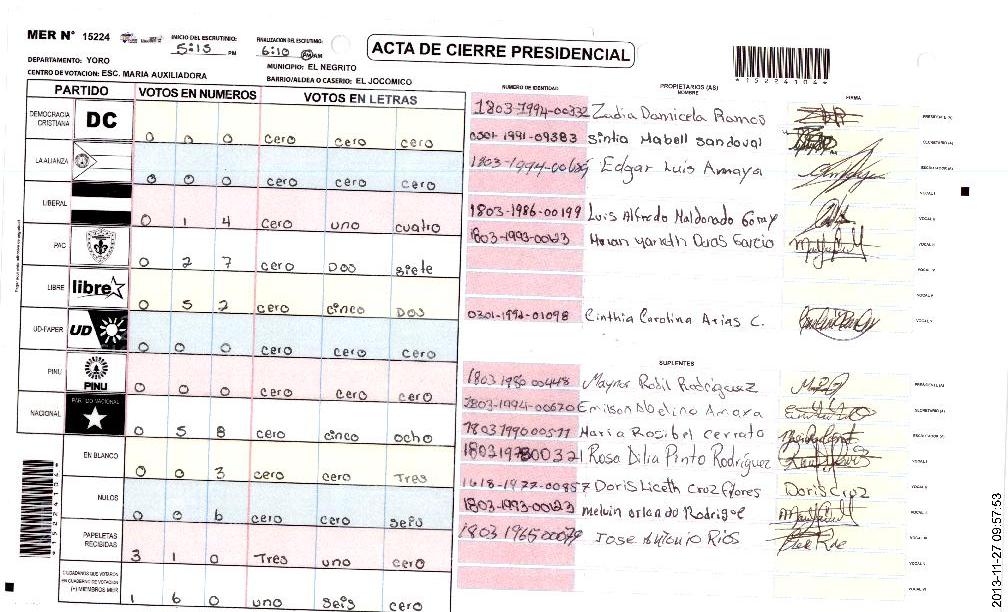 MER N° 15224
INICIO DEL ESCRUTINIO: 5:15 PM
FINALIZACION DEL ESCRUTINIO: 6:10 PM AM
ACTA DE CIERRE PRESIDENCIAL
DEPARTAMENTO: YORO
MUNICIPIO: EL NEGRITO
CENTRO DE VOTACION: ESC. MARIA AUXILIADORA
BARRIO/ALDEA O CASERIO: EL JOCOMICO
*15224104*
PARTIDO VOTOS EN NUMEROS VOTOS EN LETRAS
DEMOCRACIA CRISTIANA DC 0 0 0 cero cero cero
LA ALIANZA 0 0 0 cero cero cero
LIBERAL 0 1 4 cero uno cuatro
PAC 0 2 7 cero Dos siete
LIBRE libre 0 5 2 cero cinco Dos
UD-FAPER UD 0 0 0 cero cero cero
PINU PINU 0 0 0 cero cero cero
NACIONAL PARTIDO NACIONAL 0 5 8 cero cinco ocho
EN BLANCO 0 0 3 cero cero Tres
NULOS 0 0 6 cero cero seis
PAPELETAS RECIBIDAS 3 1 0 Tres uno cero
CIUDADANOS QUE VOTARON EN CUADERNO DE VOTACION (+) MIEMBROS MER 1 6 0 uno seis cero
NUMERO DE IDENTIDAD PROPIETARIOS (AS) NOMBRE FIRMA
1803-1994-00332 Zadia Daniela Ramos
0301-1991-09383 Sintia Mabell Sandoval SECRETARIO (A)
Edgar Luis Amaya ESCRUTADOR (A)
VOCAL I
1803-1986-00199 Luis Alfredo Maldonado VOCAL II
1803-1993-00123
VOCAL IV
VOCAL V
0301-1994-01098 Cinthia Carolina Arias C.
SUPLENTES
1803 1980 00448 Maynor Robil Rodriguez PRESIDENTE (A)
1803-1994-00670 Emilson Abelino Amaya SECRETARIO (A)
1803 1990 00577 Maria Rosibel Cerrato ESCRUTADOR (A)
Rosa Dilia Pinto Rodriguez VOCAL I
1618-1977-00857 Doris Liceth Cruz Flores Doris Cruz
1803-1993-00123 melvin orlando Rodrigel
1803 1965 00079 Jose Antonio Rios
VOCAL V
*15224104*
2013-11-27 09:57:53